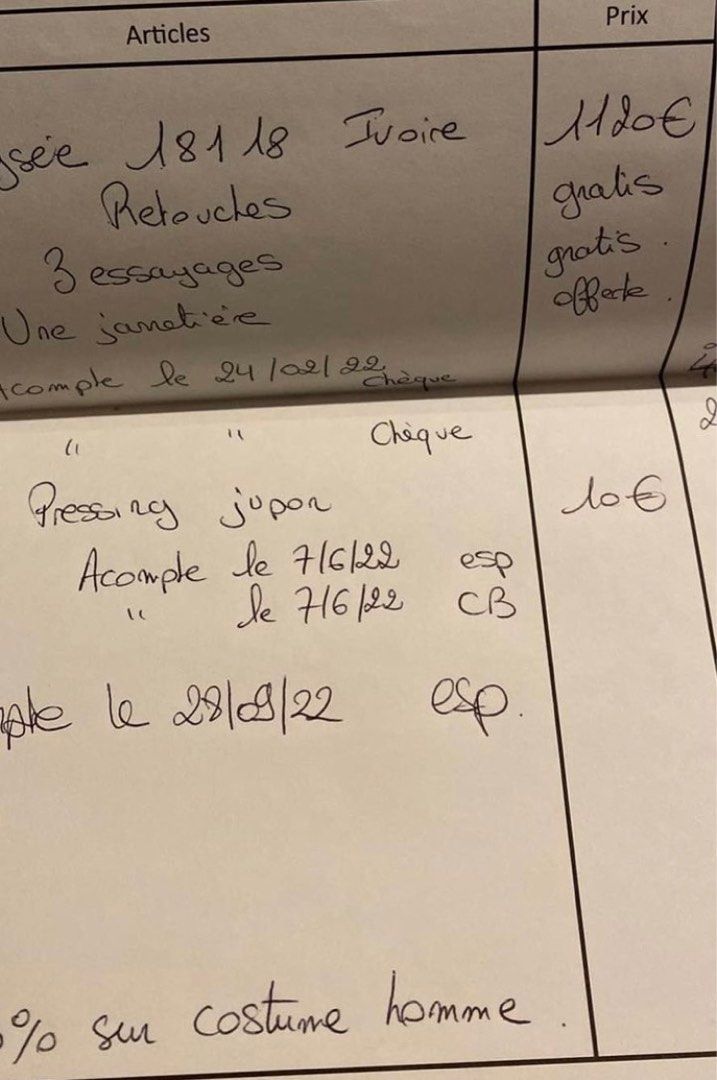 Articles Prix
sée 18118 Ivoire 1120€
Retouches gratis
3 essayages gratis.
Une jarretière offerte.
Acompte le 24/02/22 chèque
" " Chèque 2
Pressing jupon 10€
Acompte le 7/6/22 esp
" le 7/6/22 CB
mpte le 28/09/22 esp.
% sur costume homme.